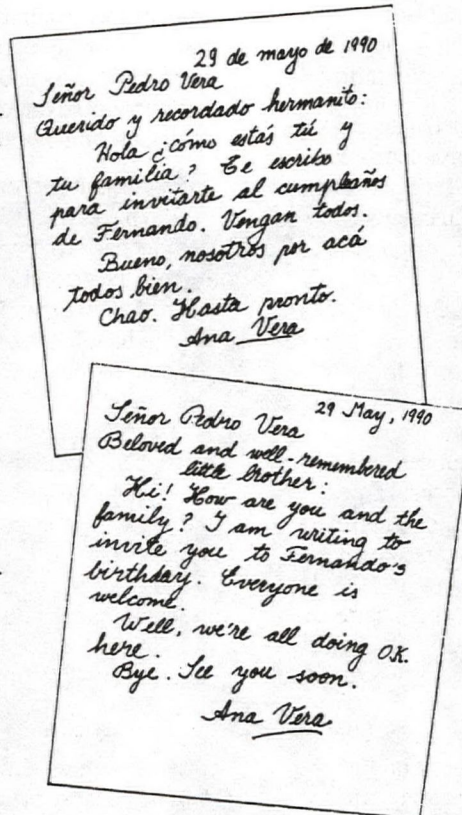 29 de mayo de 1990
Señor Pedro Vera
Querido y recordado hermanito:
Hola ¿cómo estás tú y
tu familia? Te escribo
para invitarte al cumpleaños
de Fernando. Vengan todos.
Bueno, nosotros por acá
todos bien.
Chao. Hasta pronto.
Ana Vera
29 May, 1990
Señor Pedro Vera
Beloved and well-remembered
little brother:
Hi! How are you and the
family? I am writing to
invite you to Fernando's
birthday. Everyone is
welcome.
Well, we're all doing O.K.
here.
Bye. See you soon.
Ana Vera